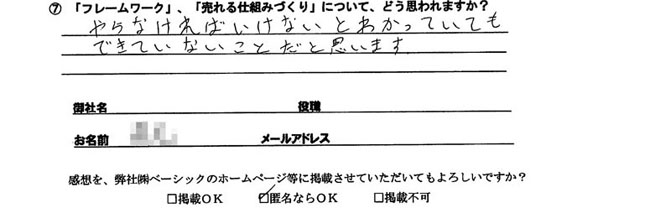 ⑦ 「フレームワーク」、「売れる仕組みづくり」について、どう思われますか？
やらなければいけないとわかっていても
できていないことだと思います
御社名 役職
お名前 メールアドレス
感想を、弊社㈱ベーシックのホームページ等に掲載させていただいてもよろしいですか？
□掲載ＯＫ ☑匿名ならＯＫ □掲載不可